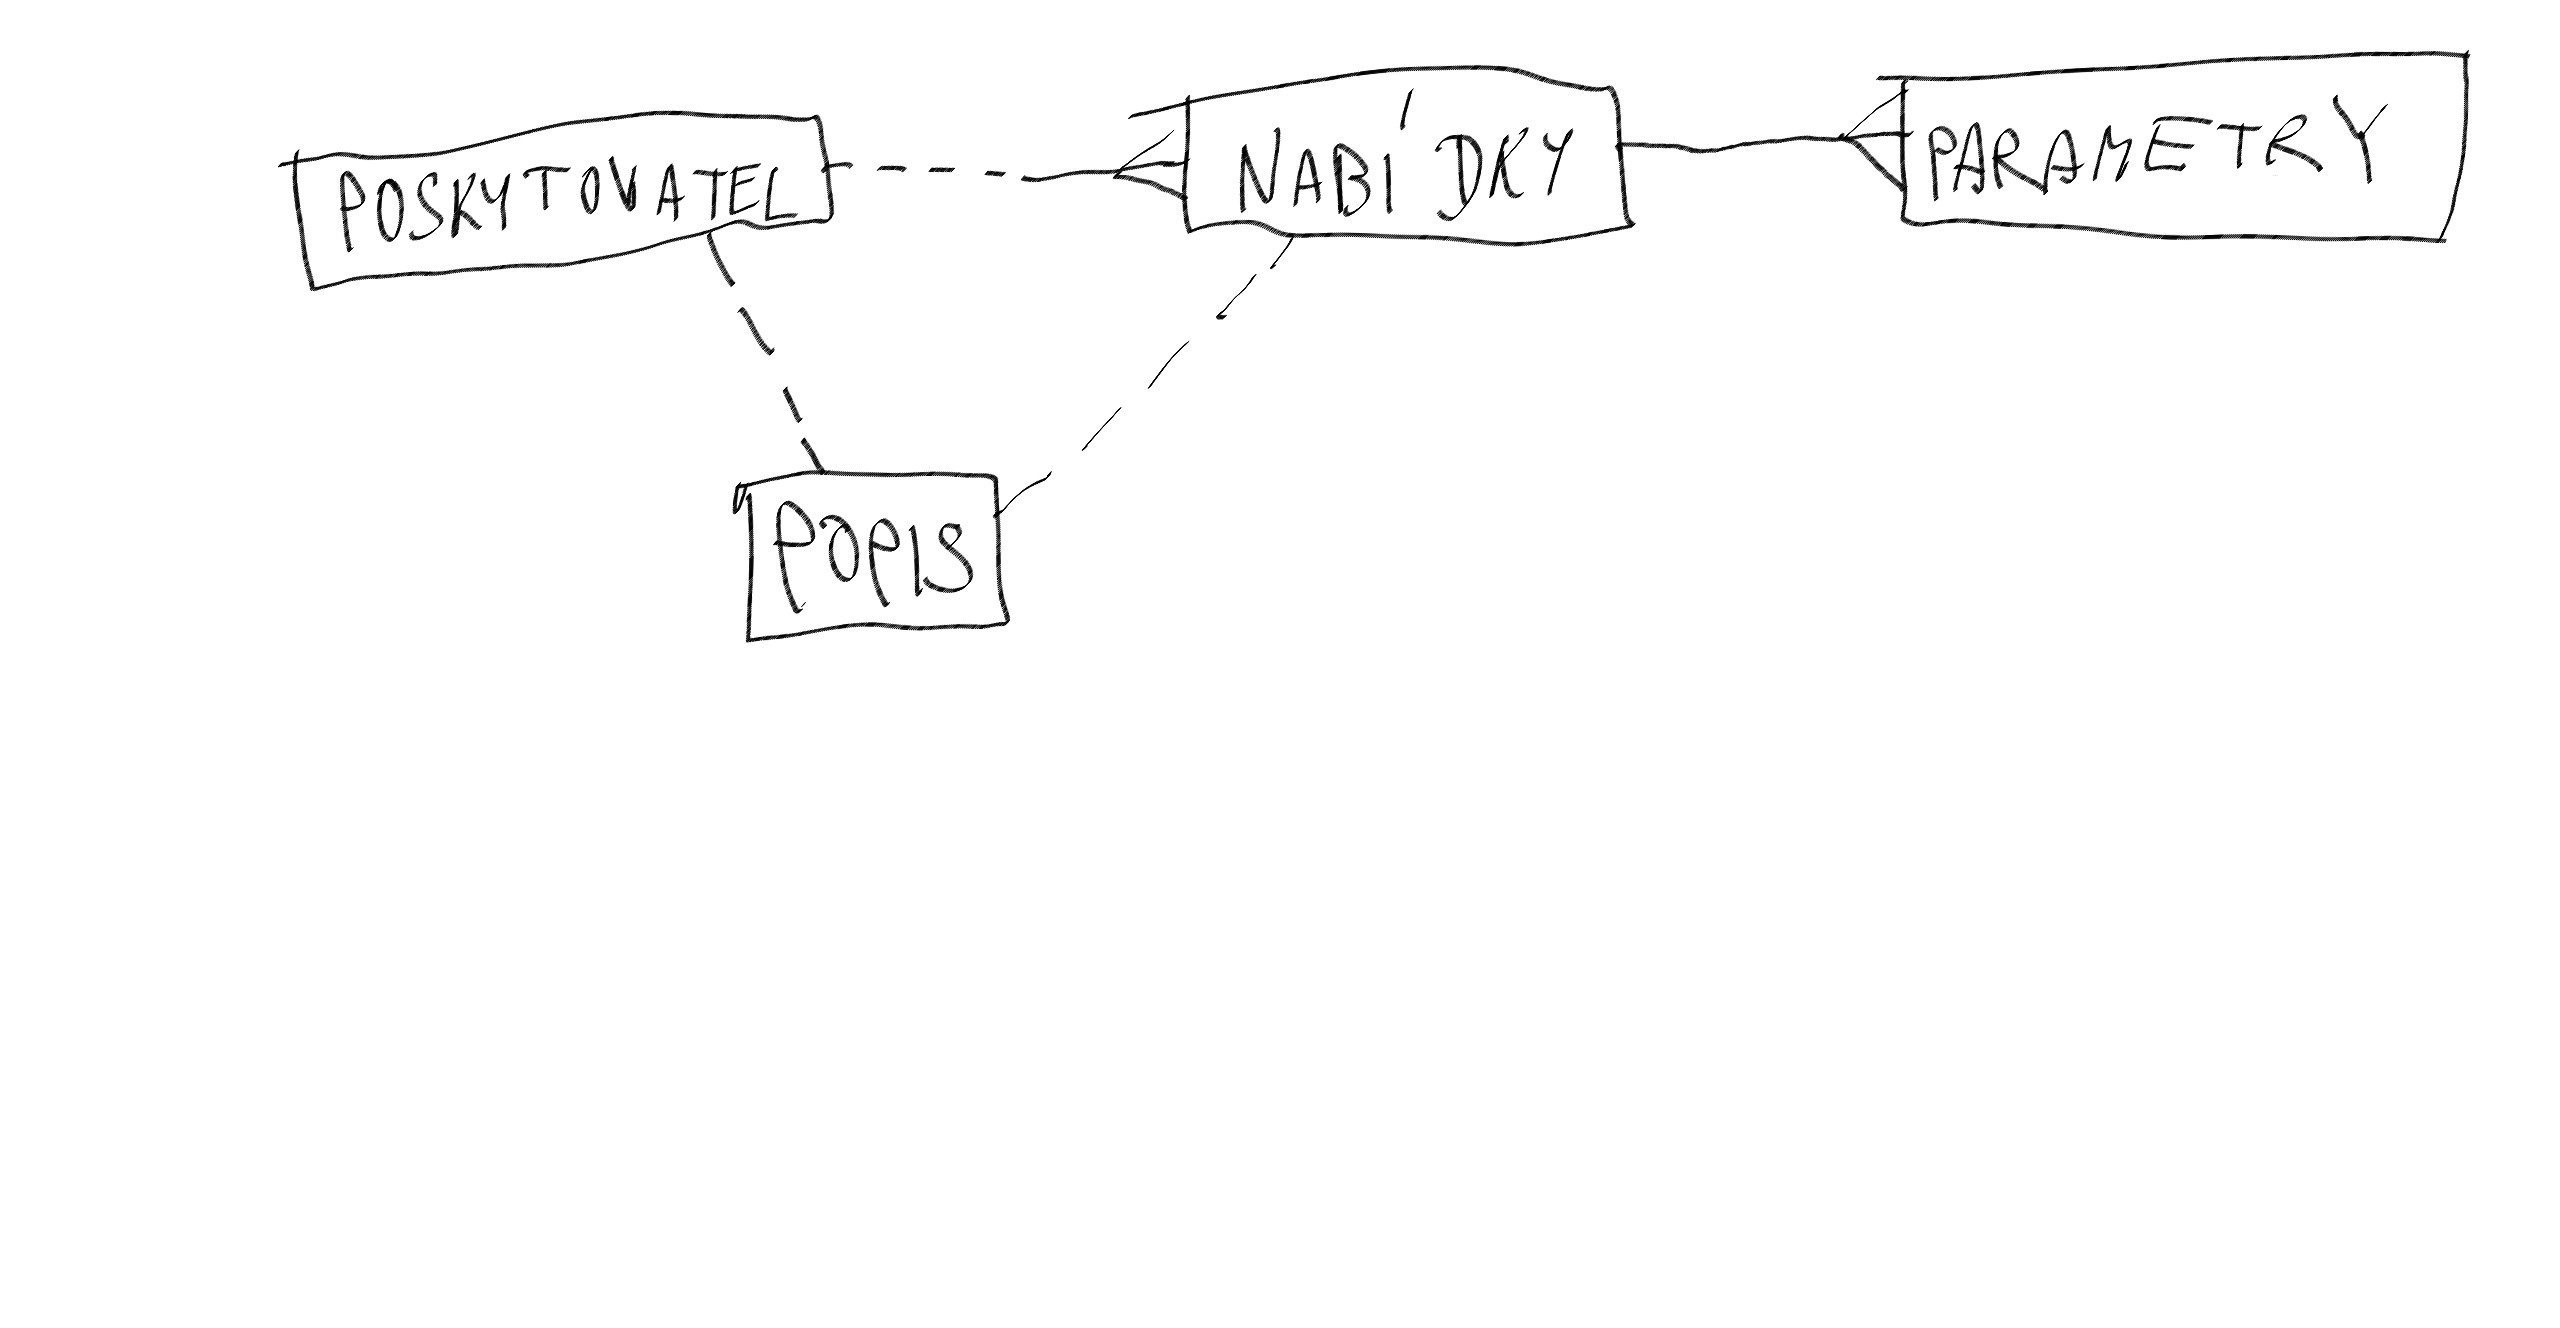 POSKYTOVATEL
NABÍDKY
PARAMETRY
POPIS